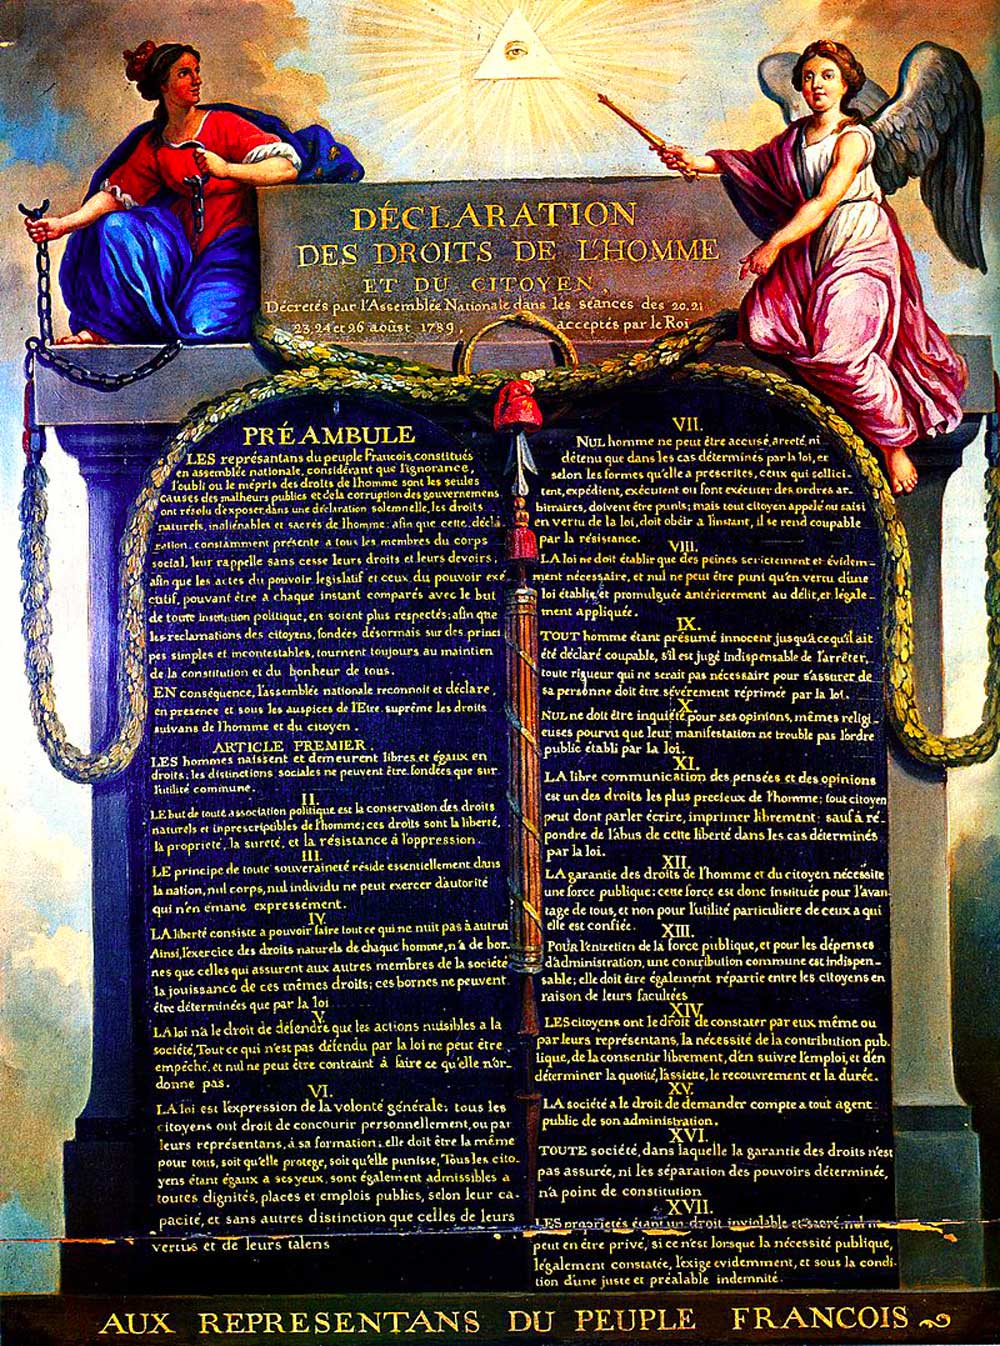 DÉCLARATION
DES DROITS DE L'HOMME
ET DU CITOYEN,
Décretés par l'Assemblée Nationale dans les séances des 20. 21
23. 24 et 26 août 1789, acceptés par le Roi
PRÉAMBULE
LES représantans du peuple Francois, constitués
en assemblée nationale, considérant que l'ignorance,
l'oubli ou le mépris des droits de l'homme sont les seules
causes des malheurs publics et de la corruption des gouvernemens
ont résolu d'exposer, dans une déclaration solemnelle, les droits
naturels, inaliénables et sacrés de l'homme; afin que cette décla
ration, constamment présente a tous les membres du corps
social, leur rappelle sans cesse leurs droits et leurs devoirs;
afin que les actes du pouvoir legislatif et ceux du pouvoir exé
cutif, pouvant être a chaque instant comparés avec le but
de toute institution politique, en soient plus respectés; afin que
les reclamations des citoyens, fondées désormais sur des princi
pes simples et incontestables, tournent toujours au maintien
de la constitution et du bonheur de tous.
EN conséquence, l'assemblée nationale reconnoit et déclare,
en presence et sous les auspices de l'Etre suprême les droits
suivans de l'homme et du citoyen.
ARTICLE PREMIER.
LES hommes naissent et demeurent libres et égaux en
droits; les distinctions sociales ne peuvent être fondées que sur
l'utilité commune.
II.
LE but de toute association politique est la conservation des droits
naturels et inprescriptibles de l'homme; ces droits sont la liberté,
la proprieté, la sureté, et la résistance à l'oppression.
III.
LE principe de toute souveraineté réside essentiellement dans
la nation, nul corps, nul individu ne peut exercer d'autorité
qui n'en émane expressément.
IV.
LA liberté consiste a pouvoir faire tout ce qui ne nuit pas à autrui
Ainsi, l'exercice des droits naturels de chaque homme, n'a de bor-
nes que celles qui assurent aux autres membres de la société
la jouissance de ces mêmes droits; ces bornes ne peuvent
être déterminées que par la loi
V.
LA loi n'a le droit de défendre que les actions nuisibles a la
société, Tout ce qui n'est pas défendu par la loi ne peut être
empéché, et nul ne peut être contraint à faire ce qu'elle n'or-
donne pas.
VI.
LA loi est l'expression de la volonté générale; tous les
citoyens ont droit de concourir personnellement, ou par
leurs représentans, à sa formation; elle doit être la même
pour tous, soit qu'elle protege, soit qu'elle punisse, Tous les cito-
yens étant égaux a ses yeux, sont également admissibles a
toutes dignités, places et emplois publics, selon leur ca-
pacité, et sans autres distinction que celles de leurs
vertus et de leurs talens
VII.
NUL homme ne peut être accusé, arreté, ni
détenu que dans les cas déterminés par la loi, et
selon les formes qu'elle a prescrites, ceux qui sollici-
tent, expédient, exécutent ou font exécuter des ordres ar-
bitraires, doivent être punis; mais tout citoyen appelé ou saisi
en vertu de la loi, doit obéir a l'instant, il se rend coupable
par la résistance.
VIII.
LA loi ne doit établir que des peines strictement et évidem-
ment nécessaire, et nul ne peut être puni qu'en vertu d'une
loi établie, et promulguée antérierement au délit, et légale-
ment appliquée.
IX.
TOUT homme étant présumé innocent jusqu'a ce qu'il ait
été déclaré coupable, s'il est jugé indispensable de l'arrêter,
toute rigueur qui ne serait pas nécessaire pour s'assurer de
sa personne doit être sévérement réprimée par la loi.
X.
NUL ne doit être inquiété pour ses opinions, mêmes religi-
euses pourvu que leur manifestation ne trouble pas l'ordre
public établi par la loi.
XI.
LA libre communication des pensées et des opinions
est un des droits les plus precieux de l'homme; tout citoyen
peut donc parler écrire, imprimer librement; sauf à ré-
pondre de l'abus de cette liberté dans les cas déterminés
par la loi.
XII.
LA garantie des droits de l'homme et du citoyen nécessite
une force publique; cette force est donc instituée pour l'avan
tage de tous, et non pour l'utilité particuliere de ceux a qui
elle est confiée.
XIII.
POUR l'entretien de la force publique, et pour les dépenses
d'administration, une contribution commune est indispen-
sable; elle doit être également répartie entre les citoyens en
raison de leurs facultées
XIV.
LES citoyens ont le droit de constater par eux même ou
par leurs représentans, la nécessité de la contribution pub-
lique, de la consentir librement, d'en suivre l'emploi, et d'en
déterminer la quotité, l'assiette, le recouvrement et la durée.
XV.
LA société a le droit de demander compte a tout agent
public de son administration.
XVI.
TOUTE société, dans laquelle la garantie des droits n'est
pas assurée, ni les séparation des pouvoirs déterminée,
n'a point de constitution
XVII.
LES proprietés étant un droit inviolable et sacré, nul ne
peut en étre privé, si ce n'est lorsque la nécessité publique,
légalement constatée, l'exige evidemment, et sous la condi-
tion d'une juste et préalable indemnité.
AUX REPRESENTANS DU PEUPLE FRANCOIS